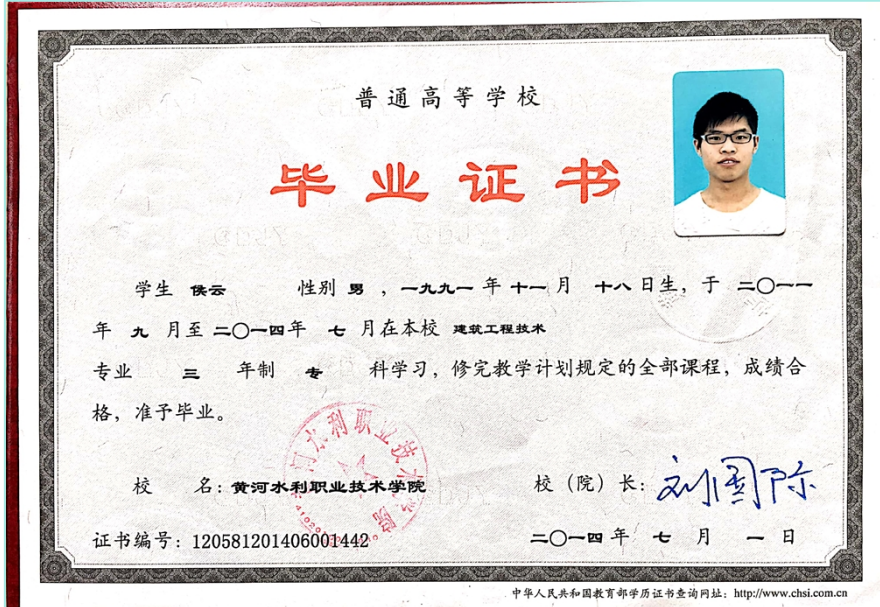 普通高等学校
毕业证书
学生 侯云 性别 男 ，一九九一 年 十一 月 十八 日生，于 二〇一一
年 九 月至 二〇一四 年 七 月在本校 建筑工程技术
专业 三 年制 专 科学习，修完教学计划规定的全部课程，成绩合
格，准予毕业。
黄河水利职业技术学院
校 名：黄河水利职业技术学院 校（院）长：刘国际
证书编号：120581201406001442 二〇一四 年 七 月 一 日
中华人民共和国教育部学历证书查询网址：http://www.chsi.com.cn